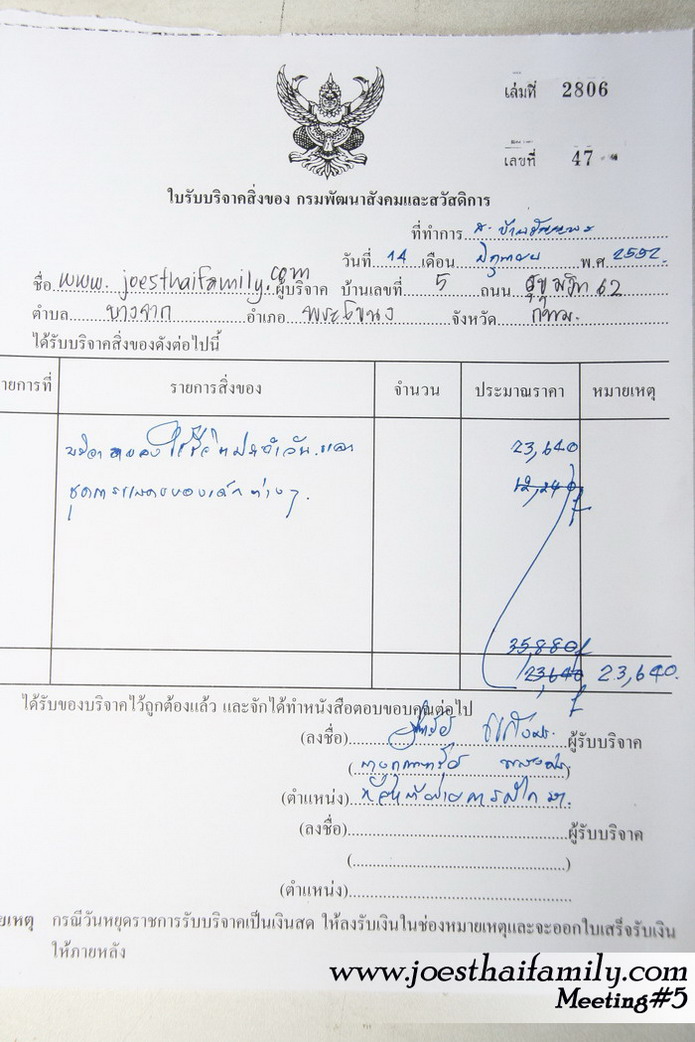 เล่มที่ 2806
เลขที่ 47
ใบรับบริจาคสิ่งของ กรมพัฒนาสังคมและสวัสดิการ
ที่ทำการ
วันที่ 14 เดือน มิถุนายน พ.ศ. 2552.
ชื่อ www.joesthaifamily.com ผู้บริจาค บ้านเลขที่ 5 ถนน สุขุมวิท 62
ตำบล บางจาก อำเภอ พระโขนง จังหวัด กทม.
ได้รับบริจาคสิ่งของดังต่อไปนี้
ายการที่ รายการสิ่งของ จำนวน ประมาณราคา หมายเหตุ
บริจาคของใช้ประจำวัน และ 23,640
ชุดการแสดงของเด็กต่างๆ. 12,240
35,880
23,640 23,640.
ได้รับของบริจาคไว้ถูกต้องแล้ว และจักได้ทำหนังสือตอบขอบคุณต่อไป
(ลงชื่อ) ผู้รับบริจาค
(ตำแหน่ง)
(ลงชื่อ) ผู้รับบริจาค
(ตำแหน่ง)
ยเหตุ กรณีวันหยุดราชการรับบริจาคเป็นเงินสด ให้ลงรับเงินในช่องหมายเหตุและจะออกใบเสร็จรับเงิน
ให้ภายหลัง
www.joesthaifamily.com
Meeting#5